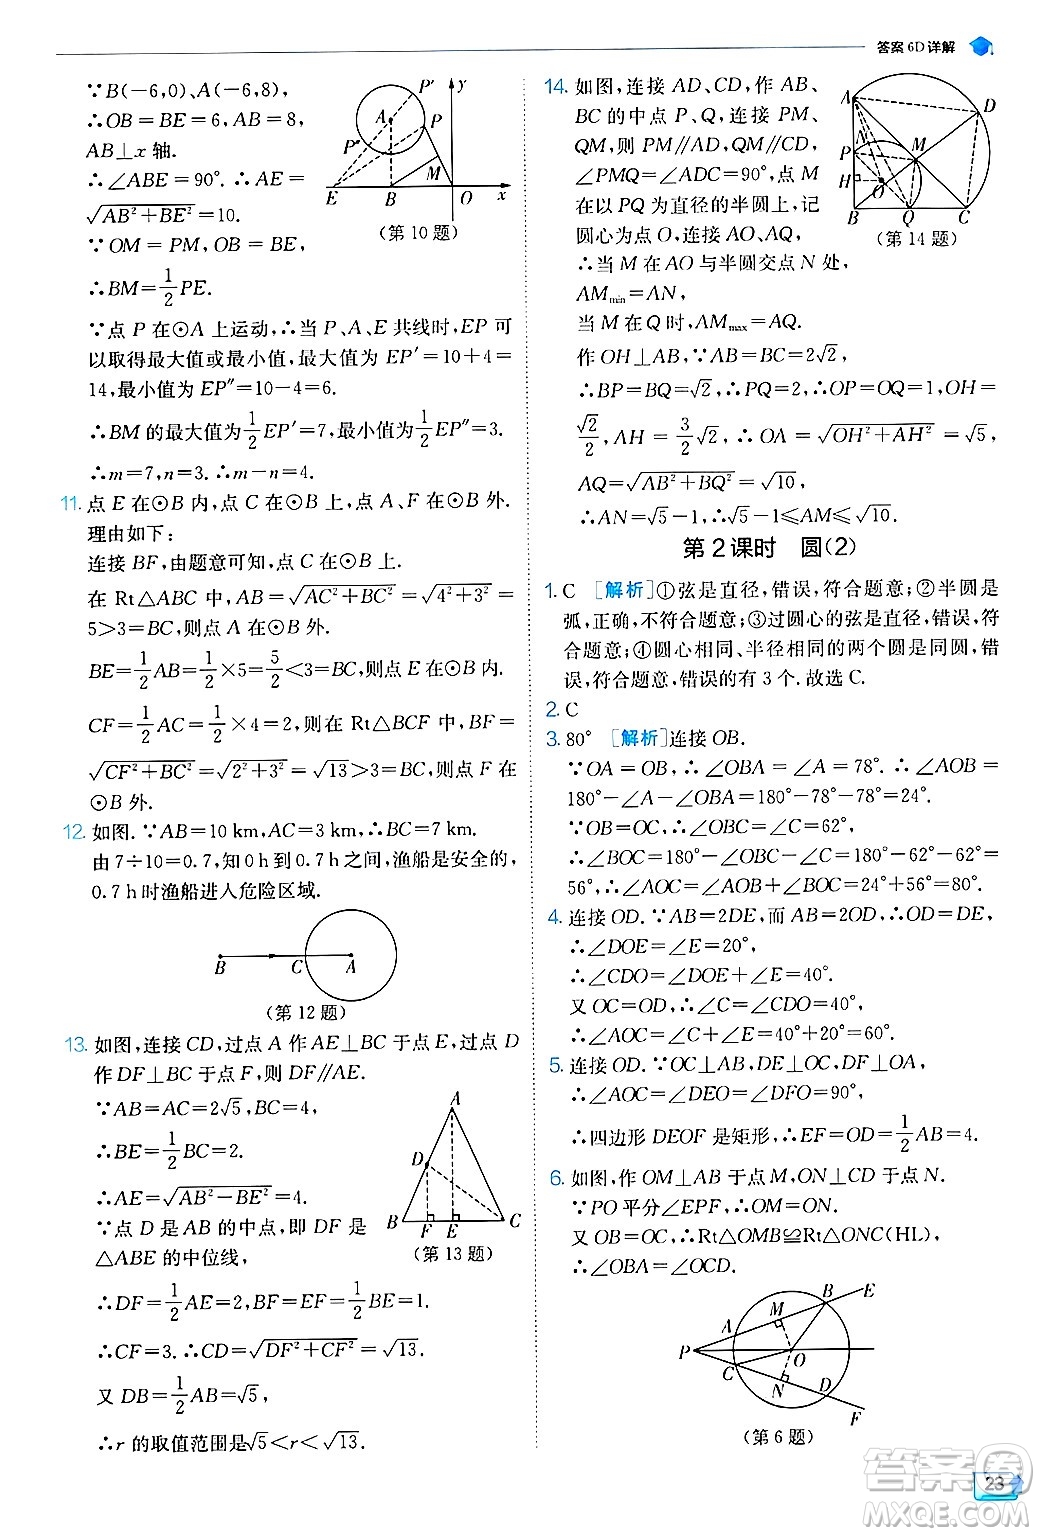 答案 6D 详解
∵B(－6,0)、A(－6,8),
∴OB＝BE＝6,AB＝8,
AB⊥x 轴.
∴∠ABE＝90°.∴AE＝
√(AB²＋BE²)＝10.
∵OM＝PM,OB＝BE,
∴BM＝1/2PE.
P′ y A P P″ M E B O x
(第 10 题)
∵点 P 在⊙A 上运动,∴当 P、A、E 共线时,EP 可
以取得最大值或最小值,最大值为 EP′＝10＋4＝
14,最小值为 EP″＝10－4＝6.
∴BM 的最大值为 1/2EP′＝7,最小值为 1/2EP″＝3.
∴m＝7,n＝3.∴m－n＝4.
11. 点 E 在⊙B 内,点 C 在⊙B 上,点 A、F 在⊙B 外.
理由如下:
连接 BF,由题意可知,点 C 在⊙B 上.
在 Rt△ABC 中,AB＝√(AC²＋BC²)＝√(4²＋3²)＝
5＞3＝BC,则点 A 在⊙B 外.
BE＝1/2AB＝1/2×5＝5/2＜3＝BC,则点 E 在⊙B 内.
CF＝1/2AC＝1/2×4＝2,则在 Rt△BCF 中,BF＝
√(CF²＋BC²)＝√(2²＋3²)＝√13＞3＝BC,则点 F 在
⊙B 外.
12. 如图.∵AB＝10 km,AC＝3 km,∴BC＝7 km.
由 7÷10＝0.7,知 0 h 到 0.7 h 之间,渔船是安全的,
0.7 h 时渔船进入危险区域.
B C A
(第 12 题)
13. 如图,连接 CD,过点 A 作 AE⊥BC 于点 E,过点 D
作 DF⊥BC 于点 F,则 DF∥AE.
∵AB＝AC＝2√5,BC＝4,
∴BE＝1/2BC＝2.
∴AE＝√(AB²－BE²)＝4.
∵点 D 是 AB 的中点,即 DF 是
△ABE 的中位线,
A D B F E C
(第 13 题)
∴DF＝1/2AE＝2,BF＝EF＝1/2BE＝1.
∴CF＝3.∴CD＝√(DF²＋CF²)＝√13.
又 DB＝1/2AB＝√5,
∴r 的取值范围是√5＜r＜√13.
14. 如图,连接 AD、CD,作 AB、
BC 的中点 P、Q,连接 PM、
QM,则 PM∥AD,QM∥CD,
∠PMQ＝∠ADC＝90°,点 M
在以 PQ 为直径的半圆上,记
圆心为点 O,连接 AO、AQ.
∴当 M 在 AO 与半圆交点 N 处,
AMmin＝AN,
当 M 在 Q 时,AMmax＝AQ.
A D P M H O B Q C
(第 14 题)
作 OH⊥AB.∵AB＝BC＝2√2,
∴BP＝BQ＝√2,∴PQ＝2,∴OP＝OQ＝1,OH＝
√2/2,AH＝3/2√2,∴OA＝√(OH²＋AH²)＝√5,
AQ＝√(AB²＋BQ²)＝√10,
∴AN＝√5－1,∴√5－1≤AM≤√10.
第 2 课时　圆(2)
1. C　[解析]①弦是直径,错误,符合题意;②半圆是
弧,正确,不符合题意;③过圆心的弦是直径,错误,符
合题意;④圆心相同、半径相同的两个圆是同圆,错
误,符合题意,错误的有 3 个.故选 C.
2. C
3. 80°　[解析]连接 OB.
∵OA＝OB,∴∠OBA＝∠A＝78°.∴∠AOB＝
180°－∠A－∠OBA＝180°－78°－78°＝24°.
∵OB＝OC,∴∠OBC＝∠C＝62°,
∴∠BOC＝180°－∠OBC－∠C＝180°－62°－62°＝
56°,∴∠AOC＝∠AOB＋∠BOC＝24°＋56°＝80°.
4. 连接 OD.∵AB＝2DE,而 AB＝2OD,∴OD＝DE,
∴∠DOE＝∠E＝20°,
∴∠CDO＝∠DOE＋∠E＝40°.
又 OC＝OD,∴∠C＝∠CDO＝40°,
∴∠AOC＝∠C＋∠E＝40°＋20°＝60°.
5. 连接 OD.∵OC⊥AB,DE⊥OC,DF⊥OA,
∴∠AOC＝∠DEO＝∠DFO＝90°,
∴四边形 DEOF 是矩形,∴EF＝OD＝1/2AB＝4.
6. 如图,作 OM⊥AB 于点 M,ON⊥CD 于点 N.
∵PO 平分∠EPF,∴OM＝ON.
又 OB＝OC,∴Rt△OMB≌Rt△ONC(HL),
∴∠OBA＝∠OCD.
E B M A P O C N D F
(第 6 题)
23
答案圈
MXQE.COM